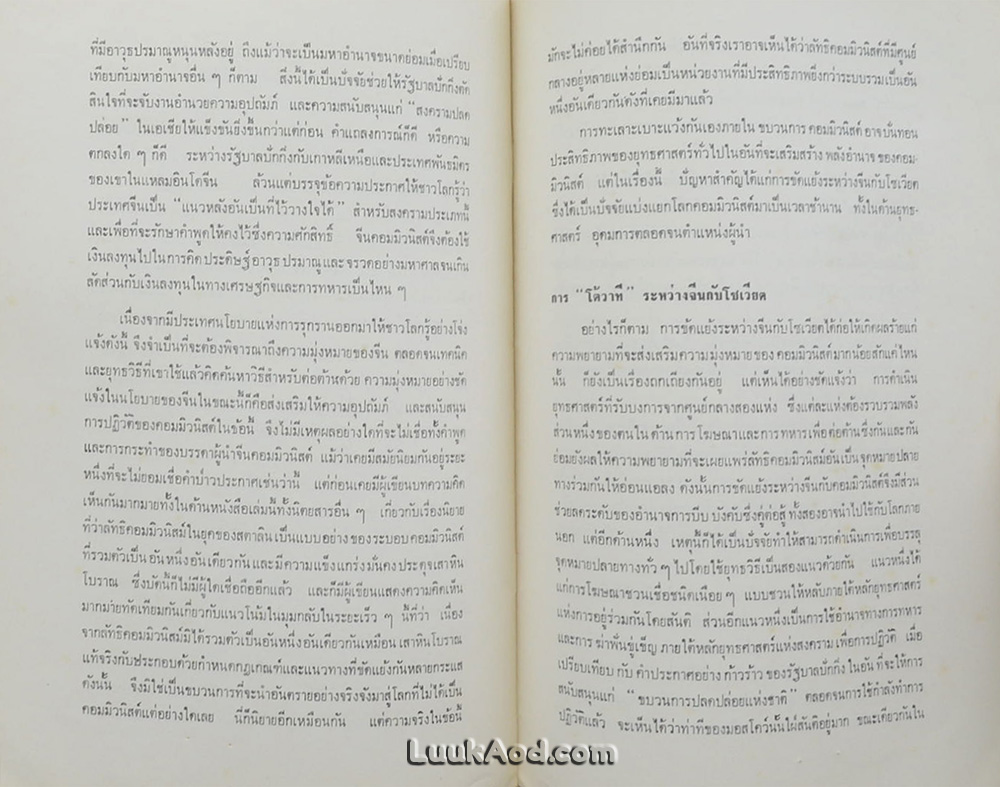 ที่มีอาวุธปรมาณูหนุนหลังอยู่ ถึงแม้ว่าจะเป็นมหาอำนาจขนาดย่อมเมื่อเปรียบ
เทียบกับมหาอำนาจอื่น ๆ ก็ตาม สิ่งนี้ได้เป็นปัจจัยช่วยให้รัฐบาลปักกิ่งตัด
สินใจที่จะจับงานอำนวยความอุปถัมภ์ และความสนับสนุนแก่ “สงครามปลด
ปล่อย” ในเอเซียให้แข็งขันยิ่งขึ้นกว่าแต่ก่อน คำแถลงการณ์ก็ดี หรือความ
ตกลงใด ๆ ก็ดี ระหว่างรัฐบาลปักกิ่งกับเกาหลีเหนือและประเทศพันธมิตร
ของเขาในแหลมอินโดจีน ล้วนแต่บรรจุข้อความประกาศให้ชาวโลกรู้ว่า
ประเทศจีนเป็น “แนวหลังอันเป็นที่ไว้วางใจได้” สำหรับสงครามประเภทนี้
และเพื่อที่จะรักษาคำพูดให้คงไว้ซึ่งความศักดิ์สิทธิ์ จีนคอมมิวนิสต์จึงต้องใช้
เงินลงทุนไปในการคิดประดิษฐ์อาวุธปรมาณูและจรวดอย่างมหาศาลจนเกิน
สัดส่วนกับเงินลงทุนในทางเศรษฐกิจและการทหารเป็นไหน ๆ
เนื่องจากมีประเทศนโยบายแห่งการรุกรานออกมาให้ชาวโลกรู้อย่างโจ่ง
แจ้งดังนี้ จึงจำเป็นที่จะต้องพิจารณาถึงความมุ่งหมายของจีน ตลอดจนเทคนิค
และยุทธวิธีที่เขาใช้แล้วคิดค้นหาวิธีสำหรับต่อต้านด้วย ความมุ่งหมายอย่างชัด
แจ้งในนโยบายของจีนในขณะนี้ก็คือส่งเสริมให้ความอุปถัมภ์ และสนับสนุน
การปฏิวัติของคอมมิวนิสต์ในข้อนี้ จึงไม่มีเหตุผลอย่างใดที่จะไม่เชื่อทั้งคำพูด
และการกระทำของบรรดาผู้นำจีนคอมมิวนิสต์ แม้ว่าเคยมีสมัยนิยมกันอยู่ระยะ
หนึ่งที่จะไม่ยอมเชื่อคำป่าวประกาศเช่นว่านี้ แต่ก่อนเคยมีผู้เขียนบทความคิด
เห็นกันมากมายทั้งในด้านหนังสือเล่มนี้ทั้งนิตยสารอื่น ๆ เกี่ยวกับเรื่องนิยาย
ที่ว่าลัทธิคอมมิวนิสม์ในยุคของสตาลินเป็นแบบอย่างของระบอบคอมมิวนิสต์
ที่รวมตัวเป็นอันหนึ่งอันเดียวกันและมีความแข็งแกร่งมั่นคงประดุจเสาหิน
โบราณ ซึ่งบัดนี้ก็ไม่มีผู้ใดเชื่อถืออีกแล้ว และก็มีผู้เขียนแสดงความคิดเห็น
มากมายทัดเทียมกันเกี่ยวกับแนวโน้มในมุมกลับในระยะเร็ว ๆ นี้ที่ว่า เนื่อง
จากลัทธิคอมมิวนิสม์มิได้รวมตัวเป็นอันหนึ่งอันเดียวกันเหมือนเสาหินโบราณ
แท้จริงกับประกอบด้วยกำหนดกฎเกณฑ์และแนวทางที่ขัดแย้งกันหลายกระแส
ดังนั้น จึงมิใช่เป็นขบวนการที่จะนำอันตรายอย่างจริงจังมาสู่โลกที่ไม่ได้เป็น
คอมมิวนิสต์แต่อย่างใดเลย นี่ก็นิยายอีกเหมือนกัน แต่ความจริงในข้อนี้
มักจะไม่ค่อยได้สำนึกกัน อันที่จริงเราอาจเห็นได้ว่าลัทธิคอมมิวนิสต์ที่มีศูนย์
กลางอยู่หลายแห่งย่อมเป็นหน่วยงานที่มีประสิทธิภาพยิ่งกว่าระบบรวมเป็นอัน
หนึ่งอันเดียวกันดังที่เคยมีมาแล้ว
การทะเลาะเบาะแว้งกันเองภายใน ขบวนการ คอมมิวนิสต์ อาจบั่นทอน
ประสิทธิภาพของยุทธศาสตร์ทั่วไปในอันที่จะเสริมสร้าง พลังอำนาจ ของคอม-
มิวนิสต์ แต่ในเรื่องนี้ ปัญหาสำคัญได้แก่การขัดแย้งระหว่างจีนกับโซเวียต
ซึ่งได้เป็นปัจจัยแบ่งแยกโลกคอมมิวนิสต์มาเป็นเวลาช้านาน ทั้งในด้านยุทธ-
ศาสตร์ อุดมการตลอดจนตำแหน่งผู้นำ
การ “โต้วาที” ระหว่างจีนกับโซเวียต
อย่างไรก็ตาม การขัดแย้งระหว่างจีนกับโซเวียตได้ก่อให้เกิดผลร้ายแก่
ความพยายามที่จะส่งเสริมความมุ่งหมายของ คอมมิวนิสต์มากน้อยสักแค่ไหน
นั้น ก็ยังเป็นเรื่องถกเถียงกันอยู่ แต่เห็นได้อย่างชัดแจ้งว่า การดำเนิน
ยุทธศาสตร์ที่รับบงการจากศูนย์กลางสองแห่ง ซึ่งแต่ละแห่งต้องรวบรวมพลัง
ส่วนหนึ่งของตนใน ด้าน การ โฆษณาและการทหารเพื่อต่อต้านซึ่งกันและกัน
ย่อมยังผลให้ความพยายามที่จะเผยแพร่ลัทธิคอมมิวนิสม์อันเป็นจุดหมายปลาย
ทางร่วมกันให้อ่อนแอลง ดังนั้นการขัดแย้งระหว่างจีนกับคอมมิวนิสต์จึงมีส่วน
ช่วยลดระดับของอำนาจการบีบ บังคับซึ่งคู่ต่อสู้ ทั้งสองอาจนำไปใช้กับโลกภาย
นอก แต่อีกด้านหนึ่ง เหตุนี้ก็ได้เป็นปัจจัยทำให้สามารถดำเนินการเพื่อบรรลุ
จุดหมายปลายทางทั่ว ๆ ไปโดยใช้ยุทธวิธีเป็นสองแนวด้วยกัน แนวหนึ่งได้
แก่การโฆษณาชวนเชื่อชนิดเนือย ๆ แบบชวนให้หลับภายใต้หลักยุทธศาสตร์
แห่งการอยู่ร่วมกันโดยสันติ ส่วนอีกแนวหนึ่งเป็นการใช้อำนาจทางการทหาร
และการ ฆ่าฟันขู่เข็ญ ภายใต้หลักยุทธศาสตร์แห่งสงคราม เพื่อการปฏิวัติ เมื่อ
เปรียบเทียบ กับ คำประกาศอย่าง ก้าวร้าว ของรัฐบาลปักกิ่ง ในอัน ที่จะให้การ
สนับสนุนแก่ “ขบวนการปลดปล่อยแห่งชาติ” ตลอดจนการใช้กำลังทำการ
ปฏิวัติแล้ว จะเห็นได้ว่าท่าทีของมอสโคว์นั้นใฝ่สันติอยู่มาก ขณะเดียวกันใน
LuukAod.com